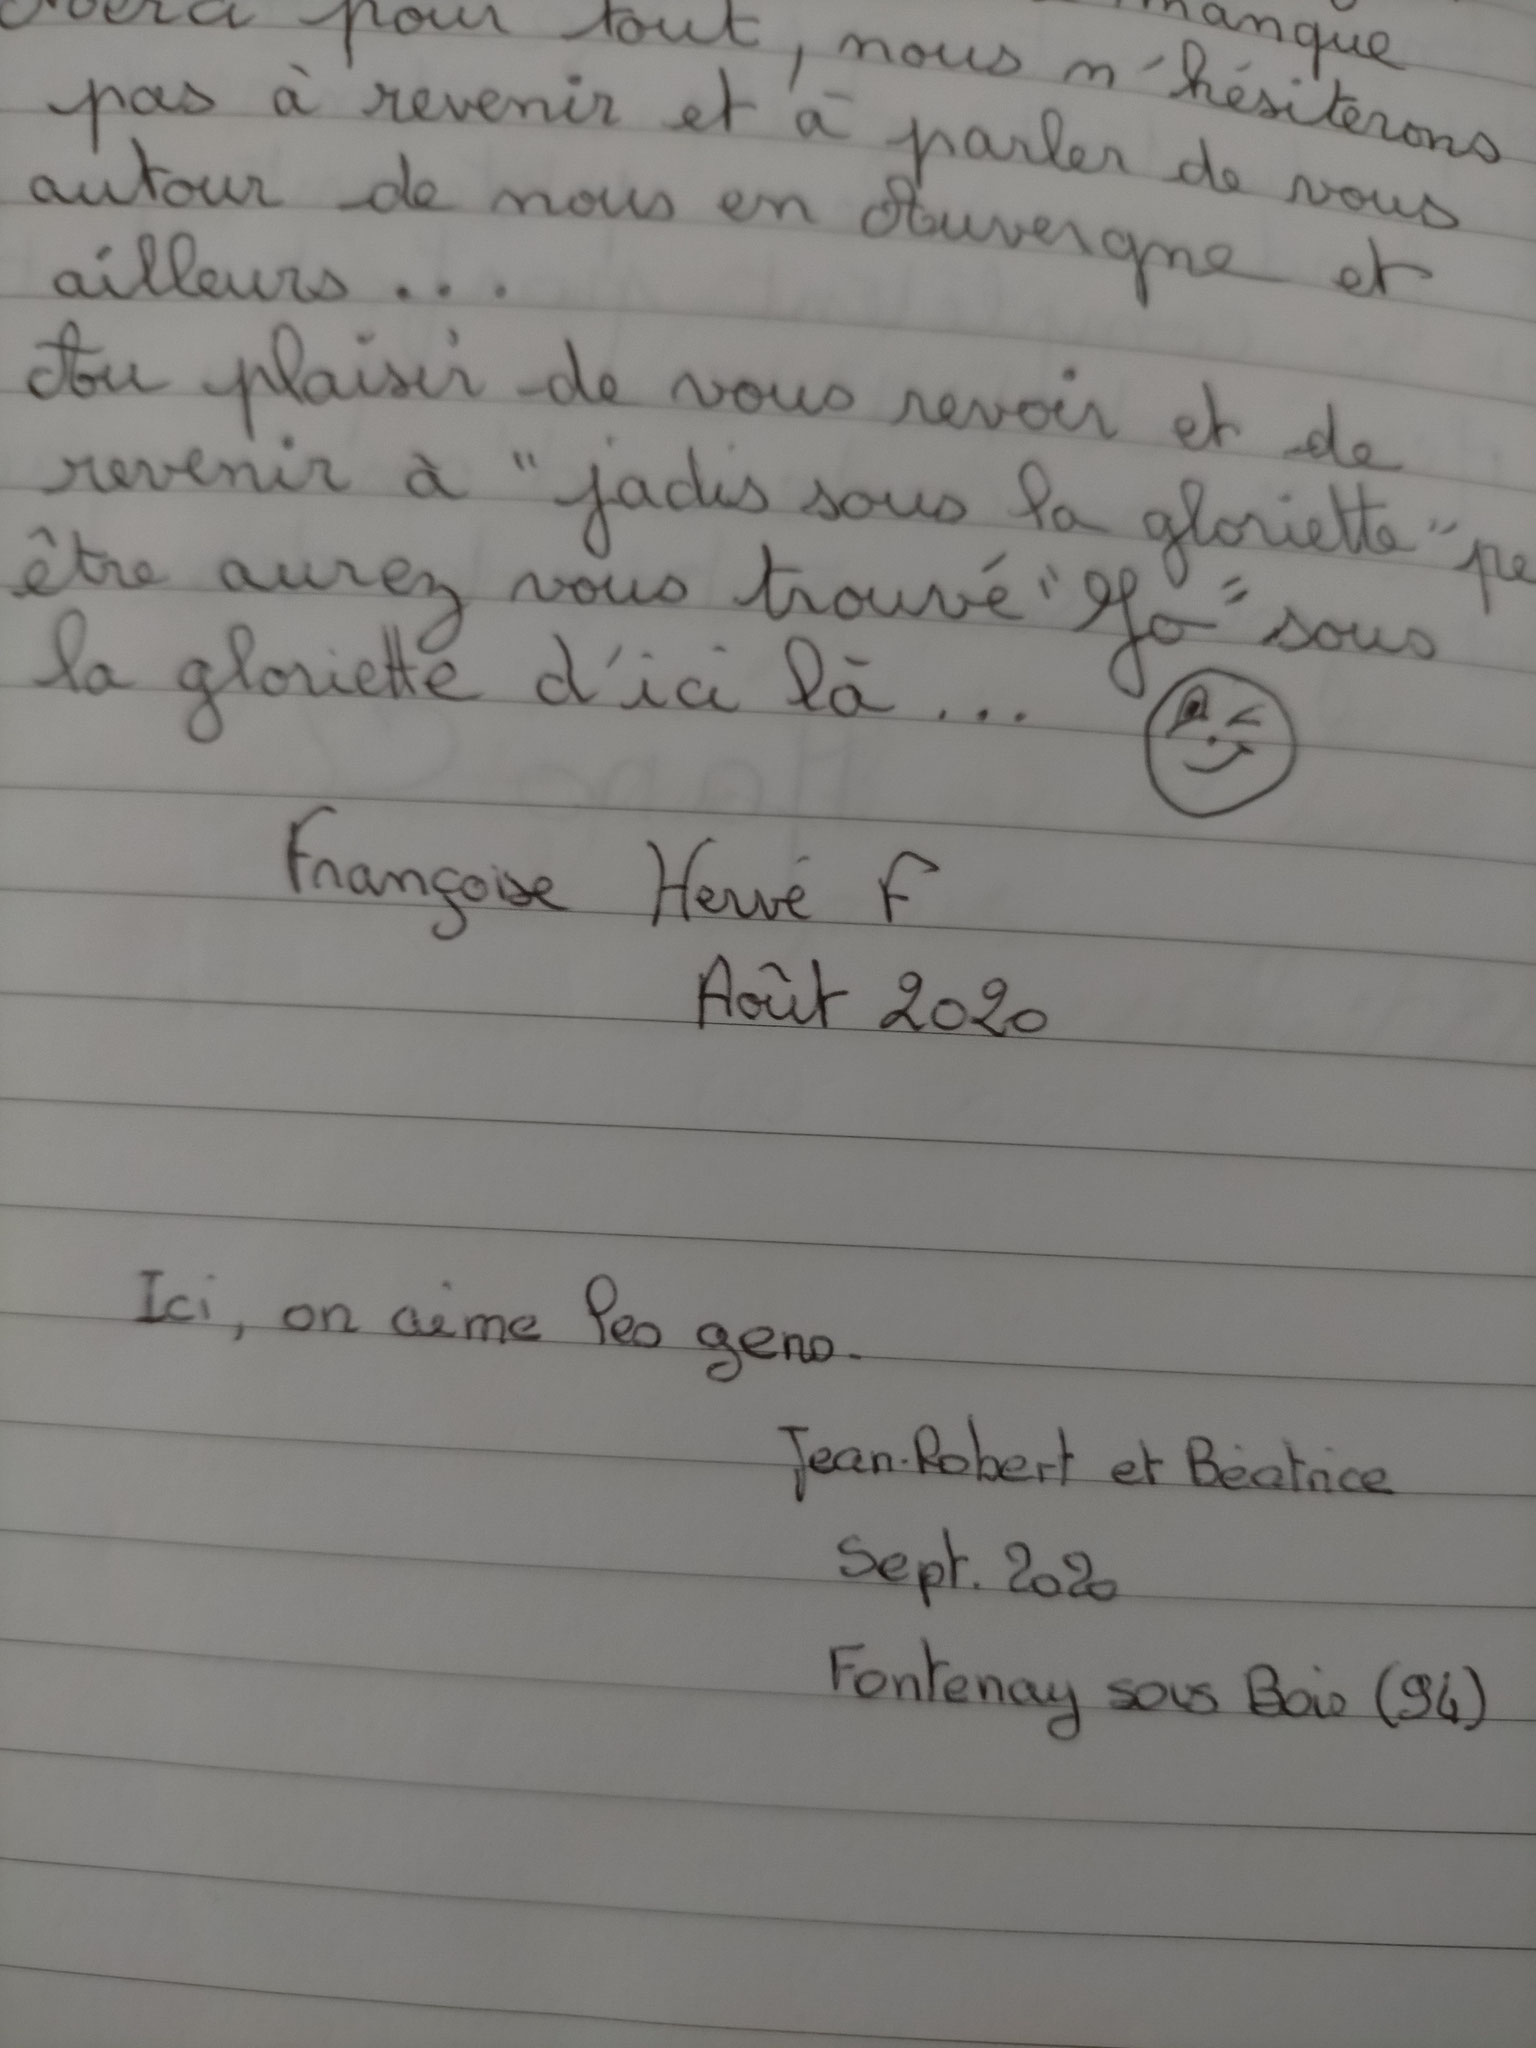 manque
pour tout, nous n'hésiterons
pas à revenir et à parler de vous
autour de nous en Auvergne et
ailleurs...
Au plaisir de vous revoir et de
revenir à "jadis sous la gloriette"
être aurez vous trouvé " " sous
la gloriette d'ici là...
Françoise Hervé F
Août 2020
Ici, on aime les gens.
Jean-Robert et Béatrice
Sept. 2020
Fontenay sous Bois (94)